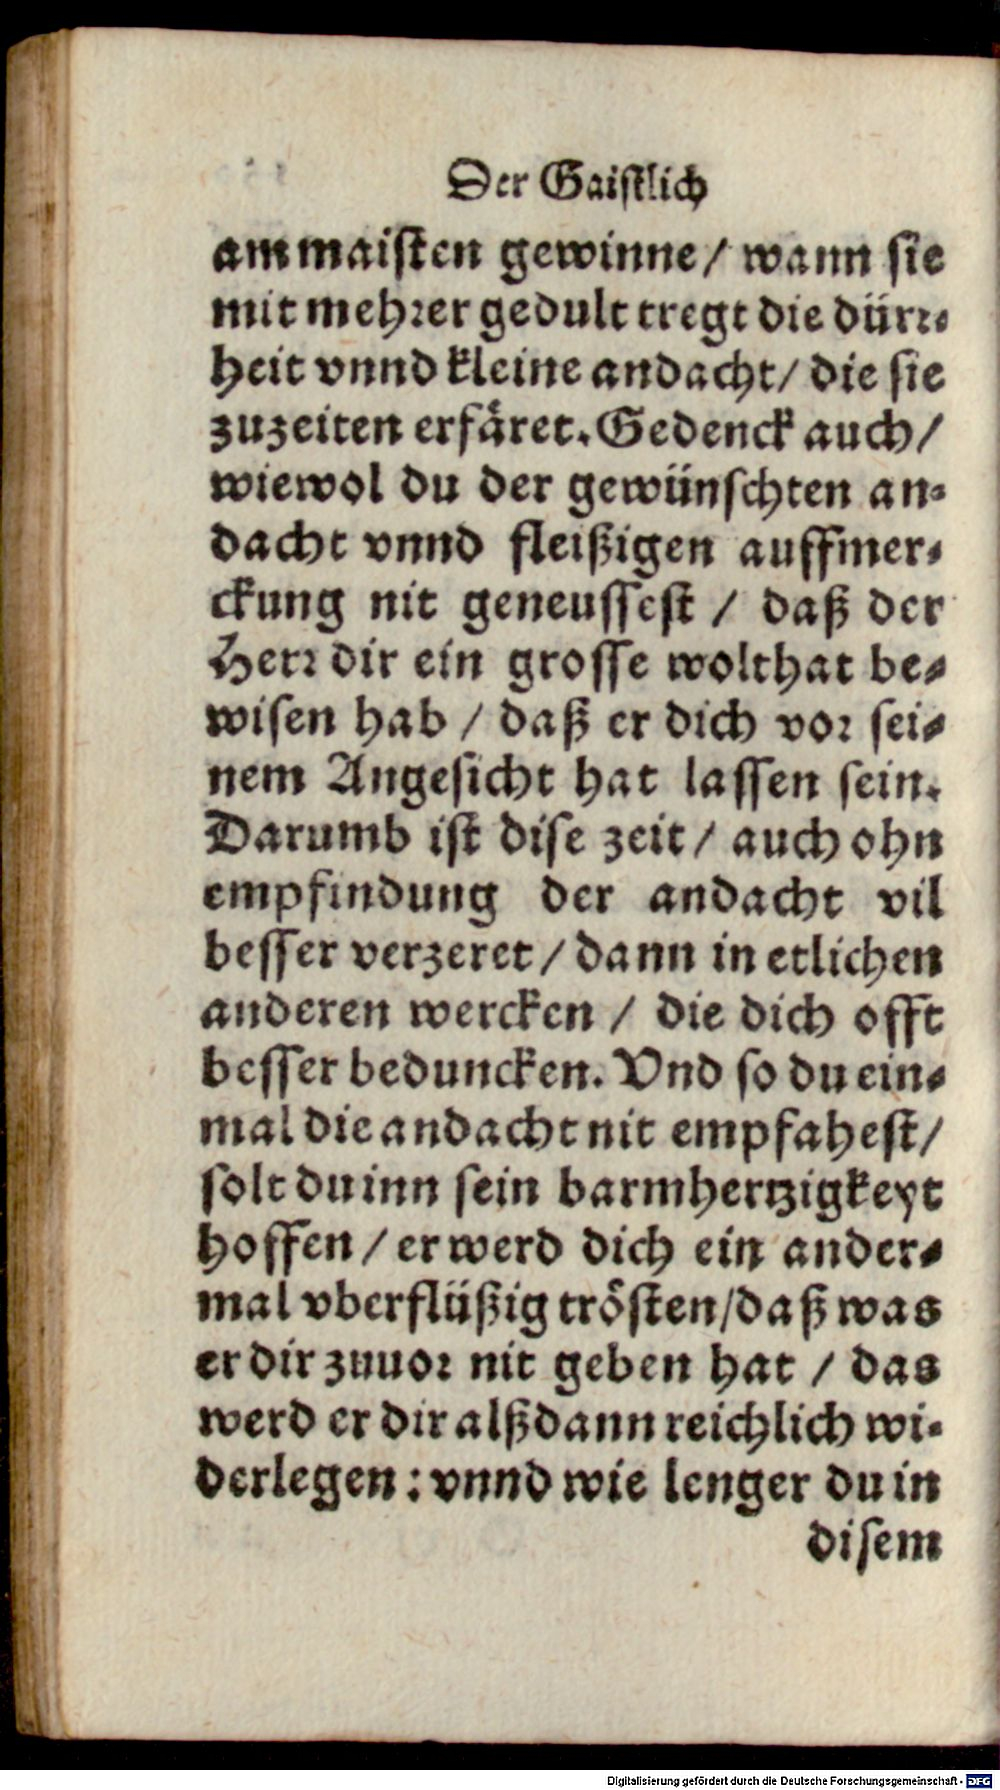 Der Gaistlich
am maisten gewinne / wann sie
mit mehrer gedult tregt die dürr-
heit vnnd kleine andacht / die sie
zuzeiten erfäret. Gedenck auch /
wiewol du der gewünschten an-
dacht vnnd fleißigen auffmer-
ckung nit geneussest / daß der
Herr dir ein grosse wolthat be-
wisen hab / daß er dich vor sei-
nem Angesicht hat lassen sein.
Darumb ist dise zeit / auch ohn
empfindung der andacht vil
besser verzeret / dann in etlichen
anderen wercken / die dich offt
besser beduncken. Vnd so du ein-
mal die andacht nit empfahest /
solt du inn sein barmhertzigkeyt
hoffen / er werd dich ein ander-
mal vberflüßig trösten / daß was
er dir zuuor nit geben hat / das
werd er dir alßdann reichlich wi-
derlegen : vnnd wie lenger du in
disem
Digitalisierung gefördert durch die Deutsche Forschungsgemeinschaft - DFG